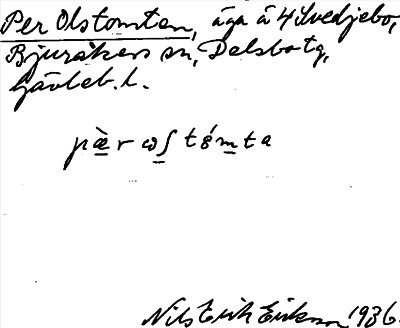 Per Olstomten, äga å 4 Svedjebo,
Bjuråkers sn, Delsbo tg,
Gävleb. l.
pæ̀r ωʃ tómta
Nils Erik Eriksson 1936.